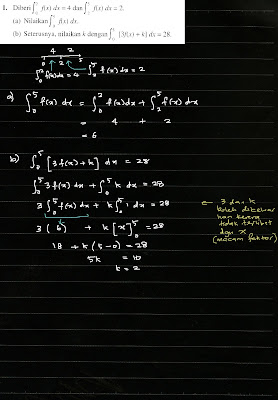 1. Diberi ∫₀² f(x) dx = 4 dan ∫₂⁵ f(x) dx = 2.
(a) Nilaikan ∫₀⁵ f(x) dx.
(b) Seterusnya, nilaikan k dengan ∫₀⁵ [3f(x) + k] dx = 28.
4 2
0 2 5
∫₀² f(x) dx = 4 ∫₂⁵ f(x) dx = 2
a) ∫₀⁵ f(x) dx = ∫₀² f(x) dx + ∫₂⁵ f(x) dx
= 4 + 2
= 6
b) ∫₀⁵ [3f(x) + k] dx = 28
∫₀⁵ 3f(x) dx + ∫₀⁵ k dx = 28
3 ∫₀⁵ f(x) dx + k ∫₀⁵ 1 dx = 28
← 3 dan k
boleh dikeluar
kan kerana
tidak terlibat
dgn x
(macam faktor)
3 (6) + k [x]₀⁵ = 28
18 + k (5-0) = 28
5k = 10
k = 2